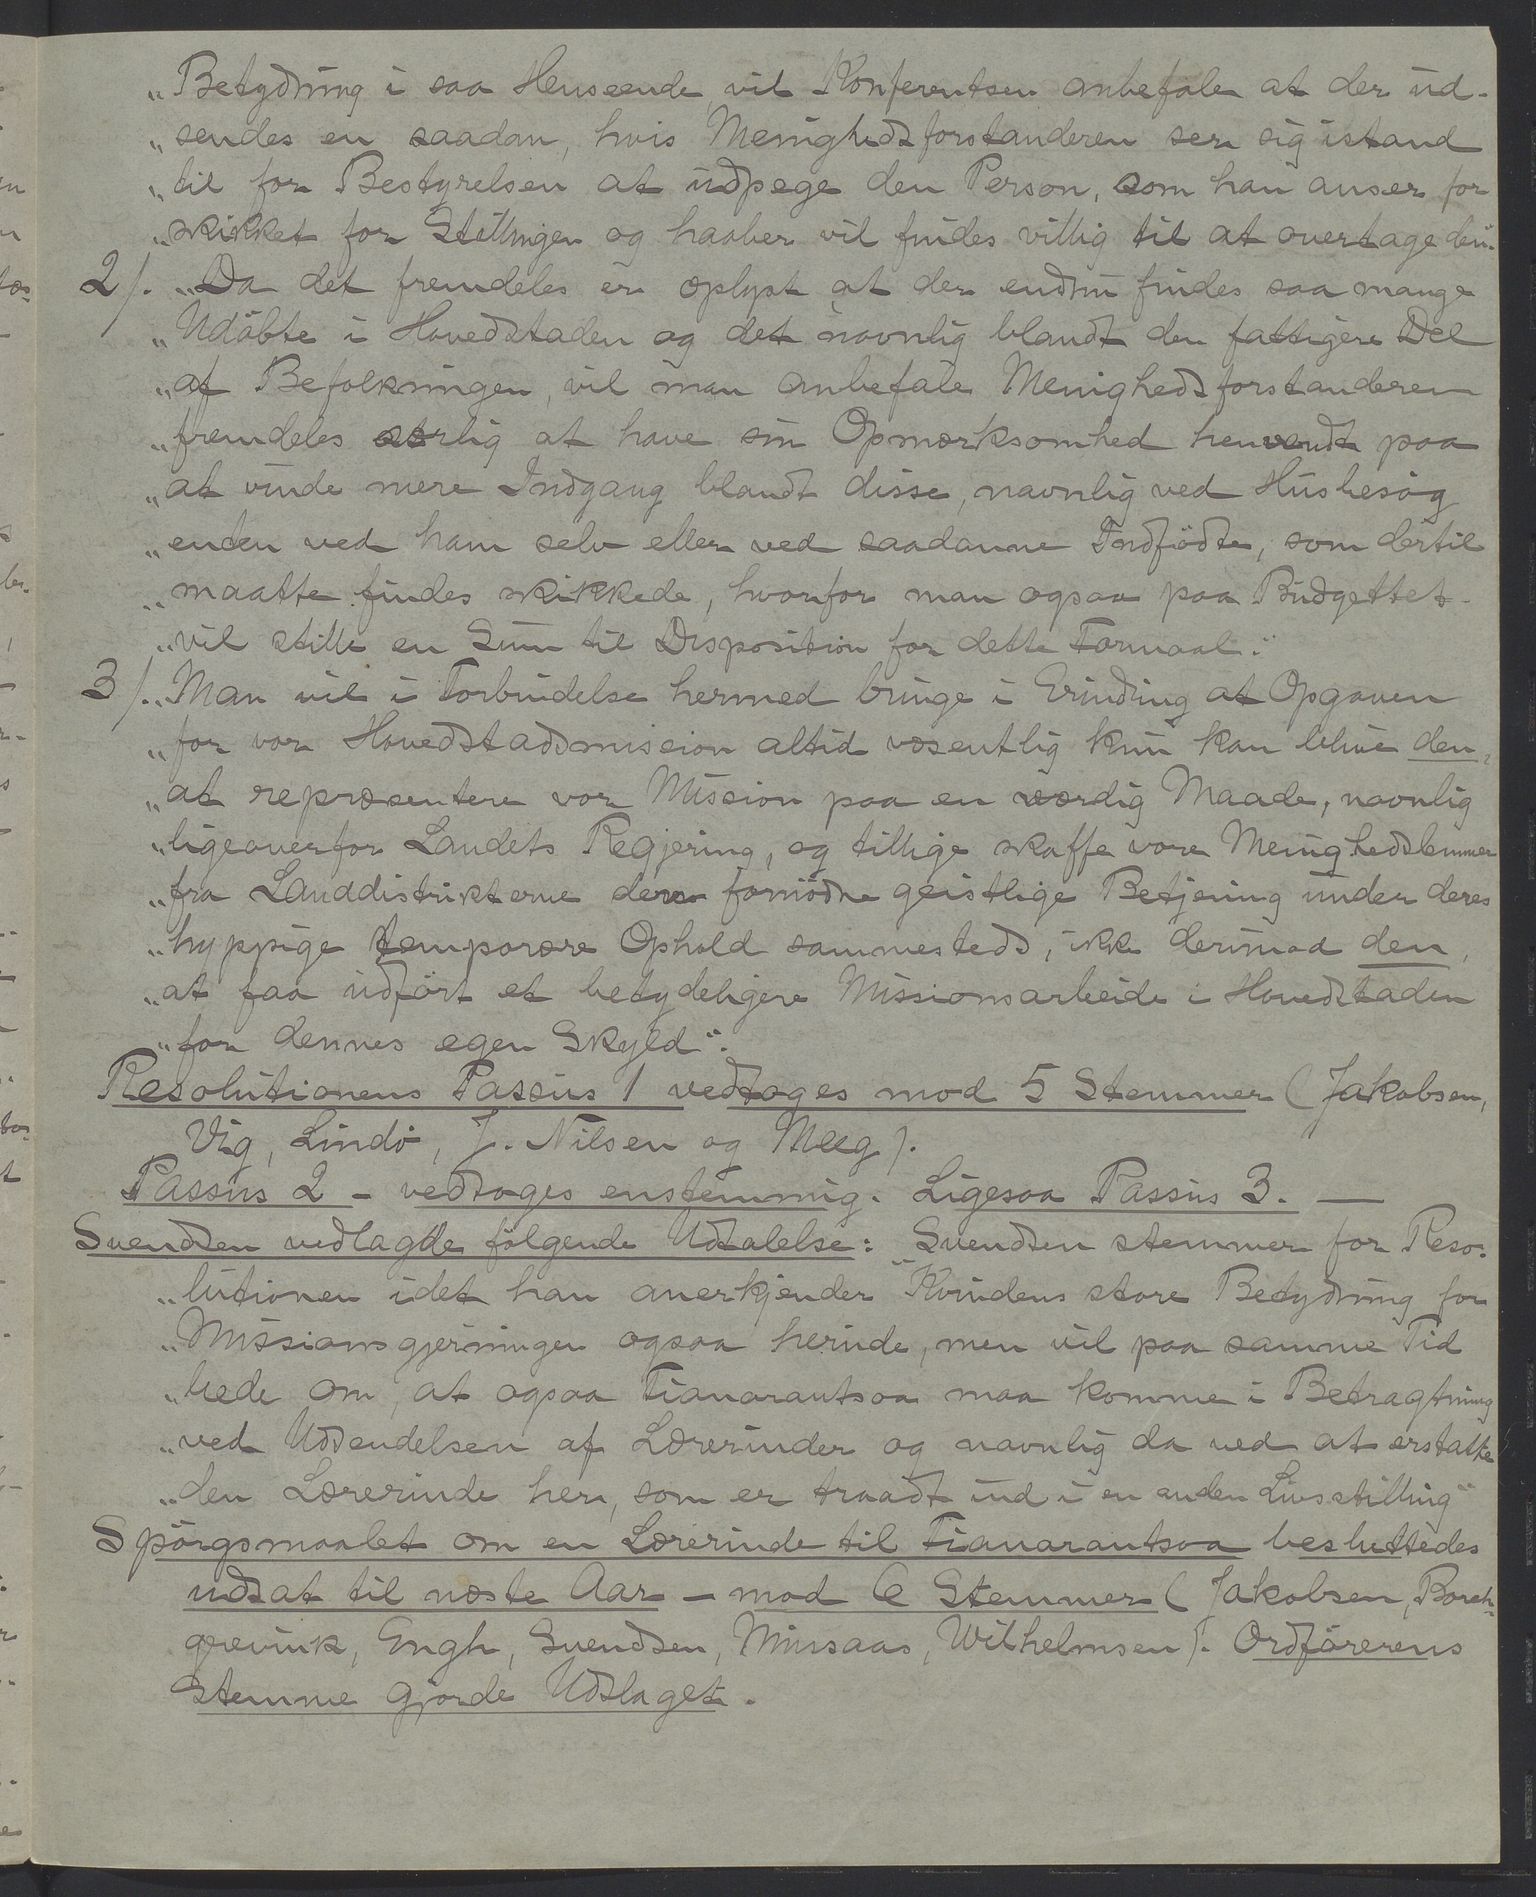 „Betydning i saa Henseende, vil Konferentsen anbefale at der ud-
„sendes en saadan, hvis Menighedsforstanderen ser sig istand
„til for Bestyrelsen at udpege den Person, som han anser for
„skikket for Stillingen og haaber vil findes villig til at overtage den."
2/. „Da det fremdeles er oplyst at der endnu findes saa mange
„Udöbte i Hovedstaden og det navnlig blandt den fattigere Del
„af Befolkningen, vil man anbefale Menighedsforstanderen
„fremdeles særlig at have sin Opmærksomhed henvendt paa
„at vinde mere Indgang blandt disse, navnlig ved Husbesög
„enten ved ham selv eller ved saadanne Indfödte, som dertil
„maatte findes skikkede, hvorfor man ogsaa paa Budgettet
„vil stille en Sum til Disposition for dette Formaal."
3/. „Man vil i Forbindelse hermed bringe i Erindring at Opgaven
„for vor Hovedstadsmission altid væsentlig kun kan blive den,
„at repræsentere vor Mission paa en værdig Maade, navnlig
„ligeoverfor Landets Regjering, og tillige skaffe vore Menighedslemmer
„fra Landdistrikterne den fornödne geistlige Betjening under deres
„hyppige temporære Ophold sammesteds, ikke derimod den,
„at faa udfört et betydeligere Missionsarbeide i Hovedstaden
„for dennes egen Skyld".
Resolutionens Passus 1 vedtoges mod 5 Stemmer (Jakobsen,
Vig, Lindö, J. Nilsen og Meeg).
Passus 2 - vedtoges enstemmig. Ligesaa Passus 3. —
Svendsen vedlagde fölgende Udtalelse: „Svendsen stemmer for Reso-
„lutionen idet han anerkjender Kvindens store Betydning for
„Missionsgjerningen ogsaa herinde, men vil paa samme Tid
„bede om, at ogsaa Fianarantsoa maa komme i Betragtning
„ved Udsendelsen af Lærerinder og navnlig da ved at erstatte
„den Lærerinde her, som er traadt ind i en anden Livsstilling"
Spörgsmaalet om en Lærerinde til Fianarantsoa besluttedes
udsat til næste Aar - mod 6 Stemmer (Jakobsen, Borch-
grevink, Engh, Svendsen, Minsaas, Wilhelmsen). Ordförerens
Stemme gjorde Udslaget.